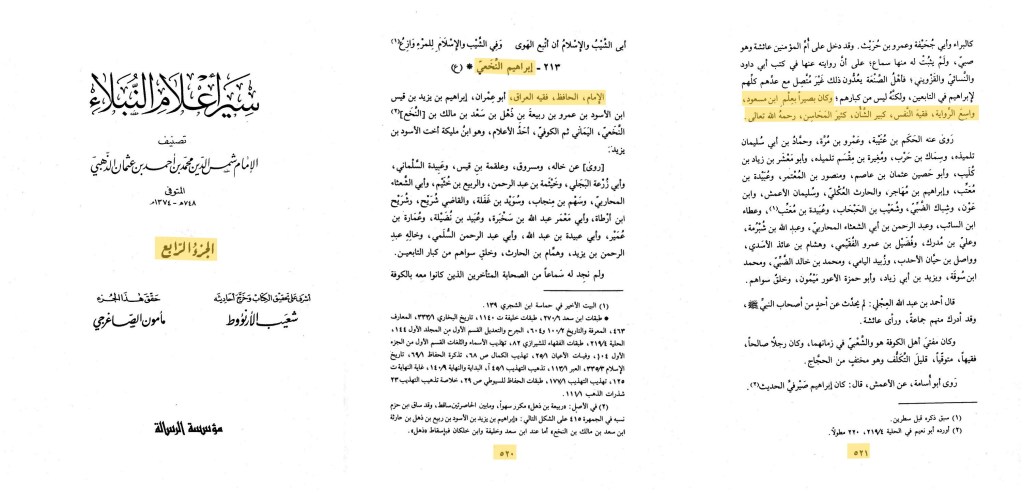 سير أعلام النبلاء
تصنيف
الإمام شمس الدين محمد بن أحمد بن عثمان الذهبي
المتوفى
٧٤٨هـ - ١٣٧٤م
الجزء الرابع
أشرف على تحقيق الكتاب وخرج أحاديثه
شعيب الأرنؤوط
حقق هذا الجزء
مأمون الصاغرجي
مؤسسة الرسالة
أبى الشَّيْبُ والإسْلامُ أن أتْبع الهَوى وَفِي الشَّيْبِ وَالإسْلَامِ لِلمَرْءِ وَازِعُ(١)
٢١٣ - إبراهيم النَّخَعيّ * (ع)
الإمام، الحافظ، فقيه العراق، أبو عِمْران، إبراهيم بن يزيد بن قيس
ابن الأسود بن عمرو بن ربيعة بن ذُهْل بن سَعْد بن مالك بن [النَّخَع](٢)
النَّخَعيّ، اليَمَانيّ ثم الكوفيّ، أحدُ الأعلام، وهو ابنُ مليكة أخت الأسود بن
يزيد.
[روى] عن خاله، ومسروق، وعلقمة بن قيس، وعَبيدة السَّلْماني،
وأبي زُرْعة البَجَلي، وخَيْثمة بن عبد الرحمن، والربيع بن خُثَيْم، وأبي الشَّعْثاء
المحاربيّ، وسَهْم بن مِنجاب، وسُوَيْد بن غَفَلة، والقاضي شُرَيْح، وشُرَيْح
ابن أرْطاة، وأبي مَعْمَر عبد الله بن سَخْبَرة، وعُبَيْد بن نُضَيْلة، وعُمَارة بن
عُمَيْر، وأبي عبيدة بن عبد الله، وأبي عبد الرحمن السُّلَمي، وخالِه عبدِ
الرحمن بن يزيد، وهمَّام بن الحارث، وخلقٍ سواهم من كبار التابعين.
ولم نجِد له سَماعاً من الصحابة المتأخرين الذين كانوا معه بالكوفة
(١) البيت الأخير في حماسة ابن الشجري ١٣٩.
* طبقات ابن سعد ٢٧٠/٦، طبقات خليفة ت ١١٤٠، تاريخ البخاري ٣٣٣/١، المعارف
٤٦٣، المعرفة والتاريخ ١٠٠/٢ و٦٠٤، الجرح والتعديل القسم الأول من المجلد الأول ١٤٤،
الحلية ٢١٩/٤، طبقات الفقهاء للشيرازي ٨٢، تهذيب الأسماء واللغات القسم الأول من الجزء
الأول ١٠٤، وفيات الأعيان ٢٥/١، تهذيب الكمال ص ٦٨، تذكرة الحفاظ ٦٩/١، تاريخ
الإسلام ٣٣٥/٣، العبر ١١٣/١، تذهيب التهذيب ٤٥/١ آ، البداية والنهاية ١٤٠/٩، غاية النهاية ت
١٢٥، تهذيب التهذيب ١٧٧/١، طبقات الحفاظ للسيوطي ص ٢٩، خلاصة تذهيب التهذيب ٢٣
شذرات الذهب ١١١/١.
(٢) في الأصل: «ربيعة بن ذهل» مكرر سهواً، ومابين الحاصرتين ساقط، وقد ساق ابن حزم
نسبه في الجمهرة ٤١٥ على الشكل التالي: «إبراهيم بن يزيد بن الأسود بن ربيع بن ذهل بن حارثة
ابن سعد بن مالك بن النخع» أما عند ابن سعد وخليفة وابن خلكان فبإسقاط «ذهل».
٥٢٠
كالبراء وأبي جُحَيْفة وعمرو بن حُرَيْث. وقد دخل على أمِّ المؤمنين عائشة وهو
صبيّ، ولَمْ يثبُتْ له منها سماع؛ على أنَّ روايته عنها في كتب أبي داود
والنسائيّ والقَزْويني؛ فأهلُ الصَّنْعَة يَعُدُّون ذلك غَيْرَ مُتَّصِل مع عدِّهم كلِّهم
لإبراهيم في التابعين، ولكنَّه ليس من كبارهم؛ وكان بصيراً بعِلْمِ ابن مسعود،
واسِعَ الرِّواية، فقيهَ النَّفْس، كبيرَ الشَّأن، كثيرَ المَحَاسِن، رحمهُ الله تعالى.
روَى عنه الحَكَم بن عُتَيْبة، وعَمرو بن مُرَّة، وحمَّاد بن أبي سُليمان
تلميذه، وسِماك بن حَرْب، ومُغيرة بن مِقْسَم تلميذه، وأبو مَعْشَر بن زياد بن
كُليب، وأبو حَصين عثمان بن عاصم، ومنصور بن المُعْتَمر، وعُبَيْدة بن
مُعَتّب، وإبراهيم بن مُهاجر، والحارث العُكْليّ، وسُليمان الأعمش، وابن
عَوْن، وشِباك الضَّبّيّ، وشُعَيْب بن الحَبْحَاب، وعُبَيدة بن مُعَتّب(١)، وعطاء
ابن السائب، وعبد الرحمن بن أبي الشعثاء المحاربي، وعبد الله بن شُبْرُمة،
وعليّ بن مُدرك، وفُضَيْل بن عمرو الفُقَيْمي، وهشام بن عائذ الأسدي،
وواصل بن حيَّان الأحدب، وزُبيد اليامي، ومحمد بن خالد الضَّبّيّ، ومحمد
ابن سُوقَة، ويزيد بن أبي زياد، وأبو حمزة الأعور مَيْمُون، وخلق سواهم.
قال أحمد بن عبد الله العِجْلي: لم يحدِّث عن أحدٍ من أصحاب النبيِّ ﷺ،
وقد أدرك منهم جماعةً، ورأى عائشة.
وكان مفتيَ أهل الكوفة هو والشَّعْبيّ في زمانهما، وكان رجلًا صالحاً،
فقيهاً، متوقّياً، قليلَ التَّكَلُّف وهو مختفٍ من الحجَّاج.
رَوى أبو أسامة، عن الأعمش، قال: كان إبراهيم صَيْرفيَّ الحديث(٢).
(١) سبق ذكره قبل سطرين.
(٢) أورده أبو نعيم في الحلية ٢١٩/٤، ٢٢٠ مطولًا.
٥٢١